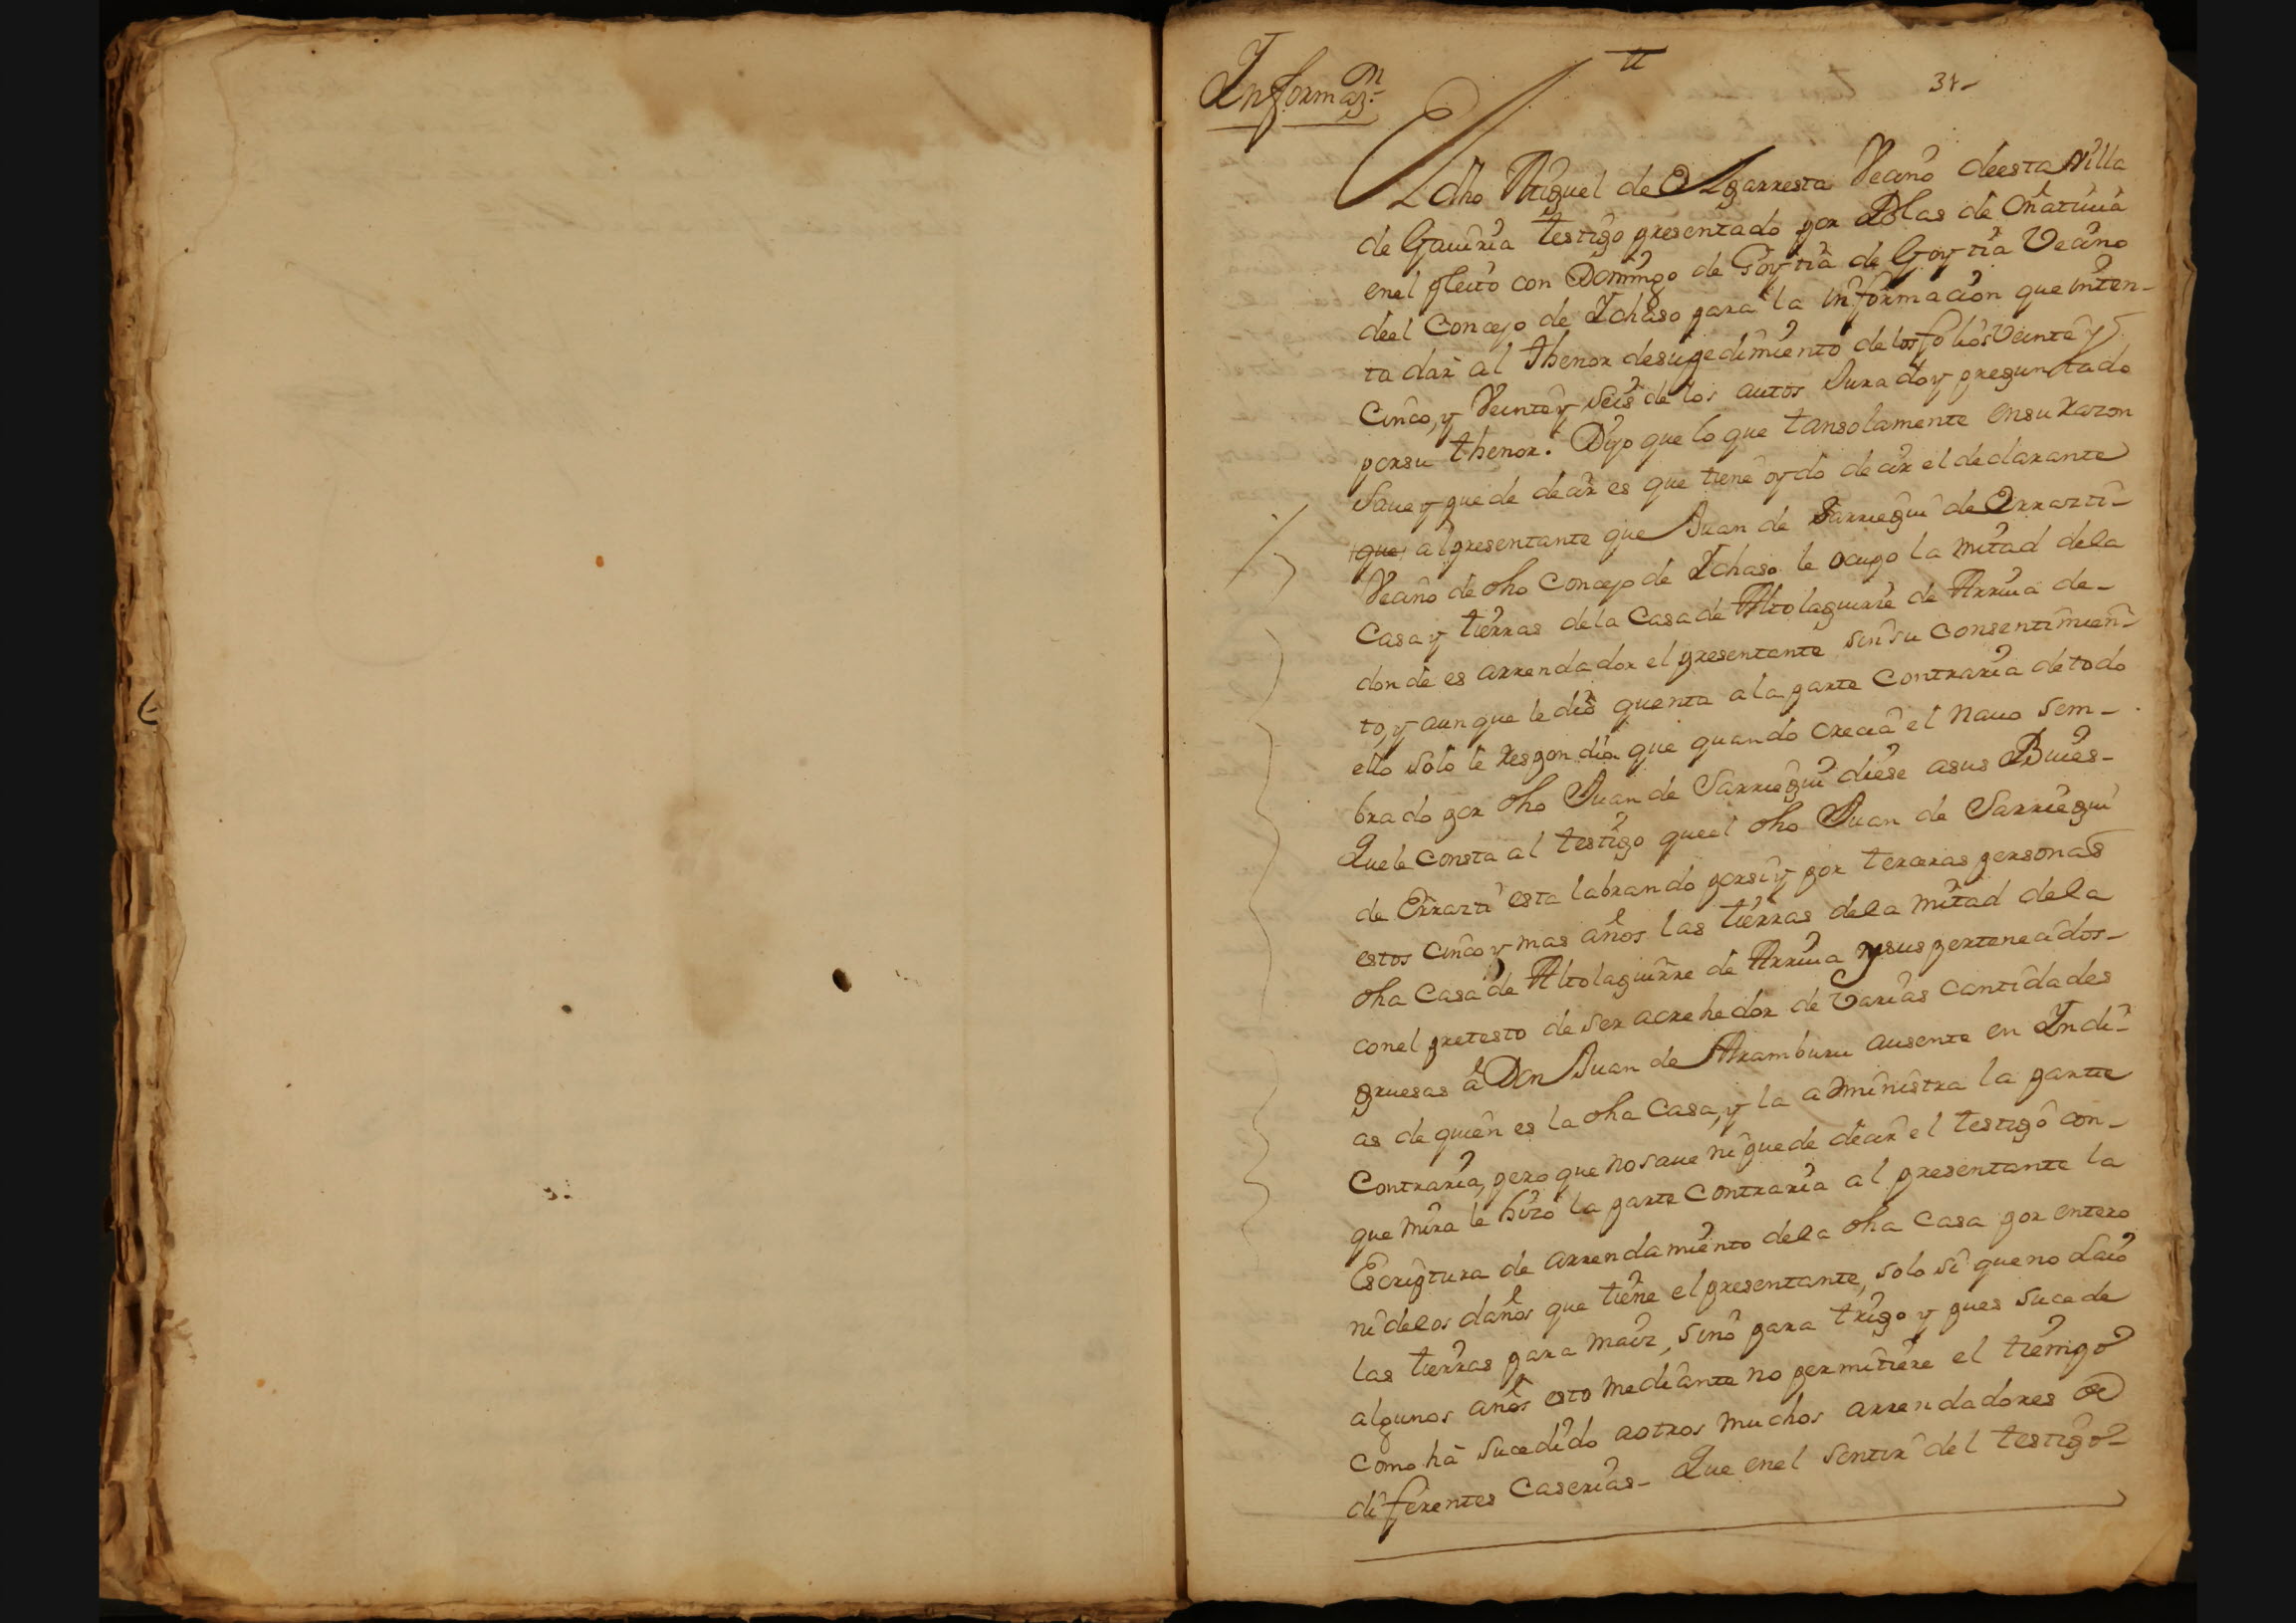 Informaz.n
tt
31-
El dho Miguel de Olgarresta Vecino deesta Villa
de Gauiria testigo presentado por Blas de Oñatiuia
enel pleito con Domingo de Goytia de Goytia Vecino
deel Concejo de Ichaso para la informacion que inten-
ta dar al thenor desu pedimiento de los folios Veinte y
Cinco, y Veinte y seis de los autos Jurado y preguntado
por su thenor. Dijo que lo que tansolamente en su razon
Saue y puede decir es que tiene oydo decir el declarante
que al presentante que Juan de Sarriegui de Errazti-
Vecino de dho Concejo de Ichaso le ocupo la mitad dela
Casa y tierras dela Casa de Altolaguirre de Arriua de-
donde es arrendador el presentante sin su consentimien-
to, y aunque le dio quenta a la parte Contraria de todo
ello solo le respondia que quando crecia el nauo sem-
brado por dho Juan de Sarriegui diese asus Bueies-
Que le Consta al testigo que el dho Juan de Sarriegui
de Errazti esta labrando porsi y por terceras personas
estos cinco y mas años las tierras dela mitad dela
dha Casa de Altolaguirre de Arriua y sus pertenecidos-
conel pretesto de ser acrehedor de Varias cantidades
gruesas a Don Juan de Aramburu ausente en Indi-
as de quien es la dha Casa, y la administra la parte
Contraria, pero que no saue ni puede decir el testigo con-
que mira le hizo la parte Contraria al presentante la
Escriptura de arrendamiento dela dha Casa por entero
ni delos daños que tiene el presentante, solo si que no Laio
las tierras para maiz, sino para trigo y pues sucede
algunos años esto mediante no permitiere el tiempo
como há sucedido aotros muchos arrendadores de
diferentes Caserias- Que enel sentir del testigo-